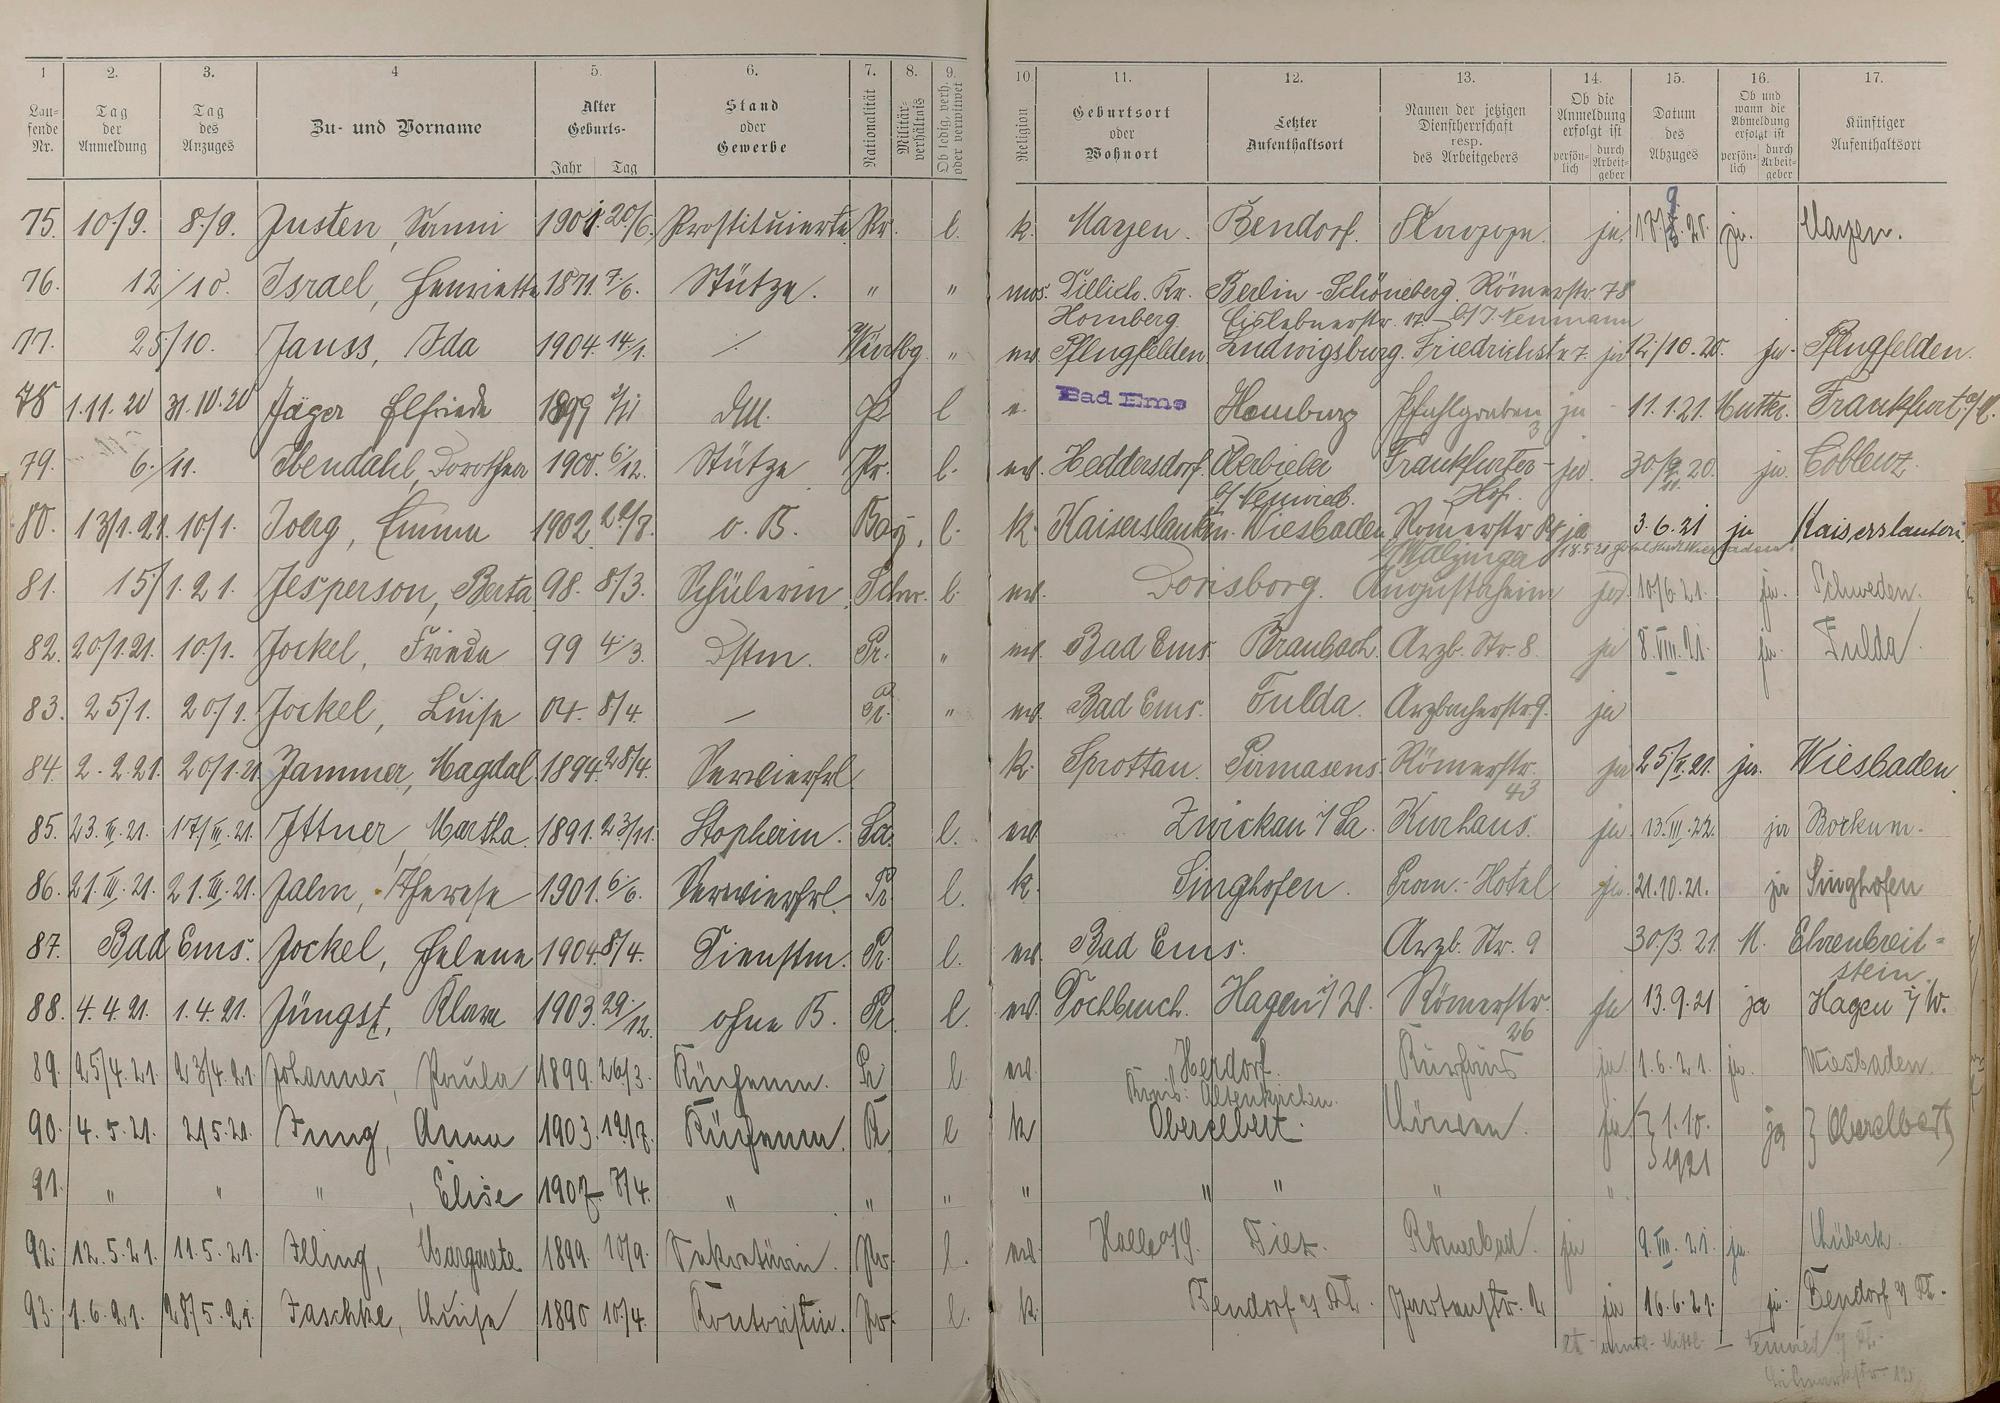 1 2. 3. 4 5. 6. 7. 8. 9. 10. 11. 12. 13. 14. 15. 16. 17.
Lau-fende Nr. Tag der Anmeldung Tag des Anzuges Zu- und Vorname Alter Geburts- Jahr Tag Stand oder Gewerbe Nationalität Militär-verhältnis Ob ledig, verh. oder verwitwet Religion Geburtsort oder Wohnort Letzter Aufenthaltsort Namen der jetzigen Dienstherrschaft resp. des Arbeitgebers Ob die Anmeldung erfolgt ist persön-lich durch Arbeit-geber Datum des Abzuges Ob und wann die Abmeldung erfolgt ist persön-lich durch Arbeit-geber Künftiger Aufenthaltsort
75. 10/9. 8/9. Justen, 1901. 20/6. Prostituierte Pr. l. k. Mayen. Bendorf. ja. 20. ja. Mayen.
76. 12/10. Israel, Henriette 1871. 7/6. Stütze. " " mos. Dillich. Kr. Berlin-Schöneberg. Römerstr. 78
Homberg. Eislebnerstr. 17 b/J. Neumann
77. 25/10. Jauss, Ida 1904. 14/1. / Württbg. " ev. Pflugfelden Ludwigsburg. Friedrichstr 7. ja 12/10.20. ja. Pflugfelden.
78 1.11.20 31.10.20 Jäger Elfriede 1899 2/11 DM. Pr l e. Bad Ems Homburg Pfahlgraben 3 ja 11.1.21. Mutter. Frankfurt a/M.
79. 6./11. Ibendahl, Dorothea 1900. 6/12. Stütze Pr. l. ev. Heddersdorf. Oberbieber Frankfurter- ja. 30/ 20. ja. Coblenz.
b/Neuwied. Hof.
80. 13/1.21. 10/1. Joerg, Emma 1902. 29/8. o. B. Bay. l. k. Kaiserslautern. Wiesbaden Römerstr ja 3.6.21 ja Kaiserslautern.
81. 15/1.21. Jesperson, Berta 98. 8/3. Schülerin Schw. l. ev. Dorisborg. Augustaheim ja. 10/6.21. ja. Schweden.
82. 20/1.21. 10/1. Jockel, Frieda 99 4/3. Dstm. Pr. " ev. Bad Ems. Braubach. Arzb. Str. 8. ja 8.VIII.21. ja. Fulda
83. 25/1. 20/1. Jockel, Luise 04. 8/4. — Pr. " ev. Bad Ems. Fulda. Arzbacherstr 9. ja
84. 2.2.21. 20/1.21 Jammer, Magdal. 1894. 28/4. Servierfrl. k. Sprottau. Pirmasens. Römerstr. ja 25/II.21. ja. Wiesbaden.
43
85. 23.III.21. 17/III.21. Ittner Martha. 1891. 23/11. Stopferin. Sa. l. ev. Zwickau i/Sa. Kurhaus. ja 13.III.22. ja Borkum.
86. 21.III.21. 21.III.21. Jalm, Therese 1901. 6/6. Servierfrl. Pr. l. k. Singhofen. Prom.-Hotel ja. 21.10.21. ja Singhofen
87. Bad Ems. Jockel, Helene 1904. 8/4. Dienstm. Pr. l. ev. Bad Ems. Arzb. Str. 9 30/3.21 M. Ehrenbreit-
stein.
88. 4.4.21. 1.4.21. Jüngst, Klara 1903. 29/12. ohne B. Pr. l. ev. Hagen i/W. Römerstr. ja 13.9.21 ja Hagen i/W.
26
89. 25/4.21. 23/4.21. Johannes, Paula 1899. 26/3. Küchenm. Pr l. ev. Herdorf. Kurhaus ja. 1.6.21. ja. Wiesbaden.
Kreis: Altenkirchen.
90. 4.5.21. 2/5.21. Jung, Anna 1903. 19/7. Küchenm. Pr. l k Oberelbert. Löwen. ja } 1.10. ja } Oberelbert
1921
91. " " " , Elise 1907 7/4. " " " " " " " "
92. 12.5.21. 11.5.21. Illing, Margarete 1899. 10/9. Sekretärin. Pr. l. ev. Halle a/S. Diez. Römerbad. ja 9.VIII.21. ja. Lübeck.
93. 1.6.21. 28/5.21. Jaschke, Luise 1890 10/4. Kontoristin. Pr. l. k. Bendorf a/Rh. Gartenstr. 2 ja 16.6.21. ja. Bendorf a/Rh.
Neuwied a/Rh.